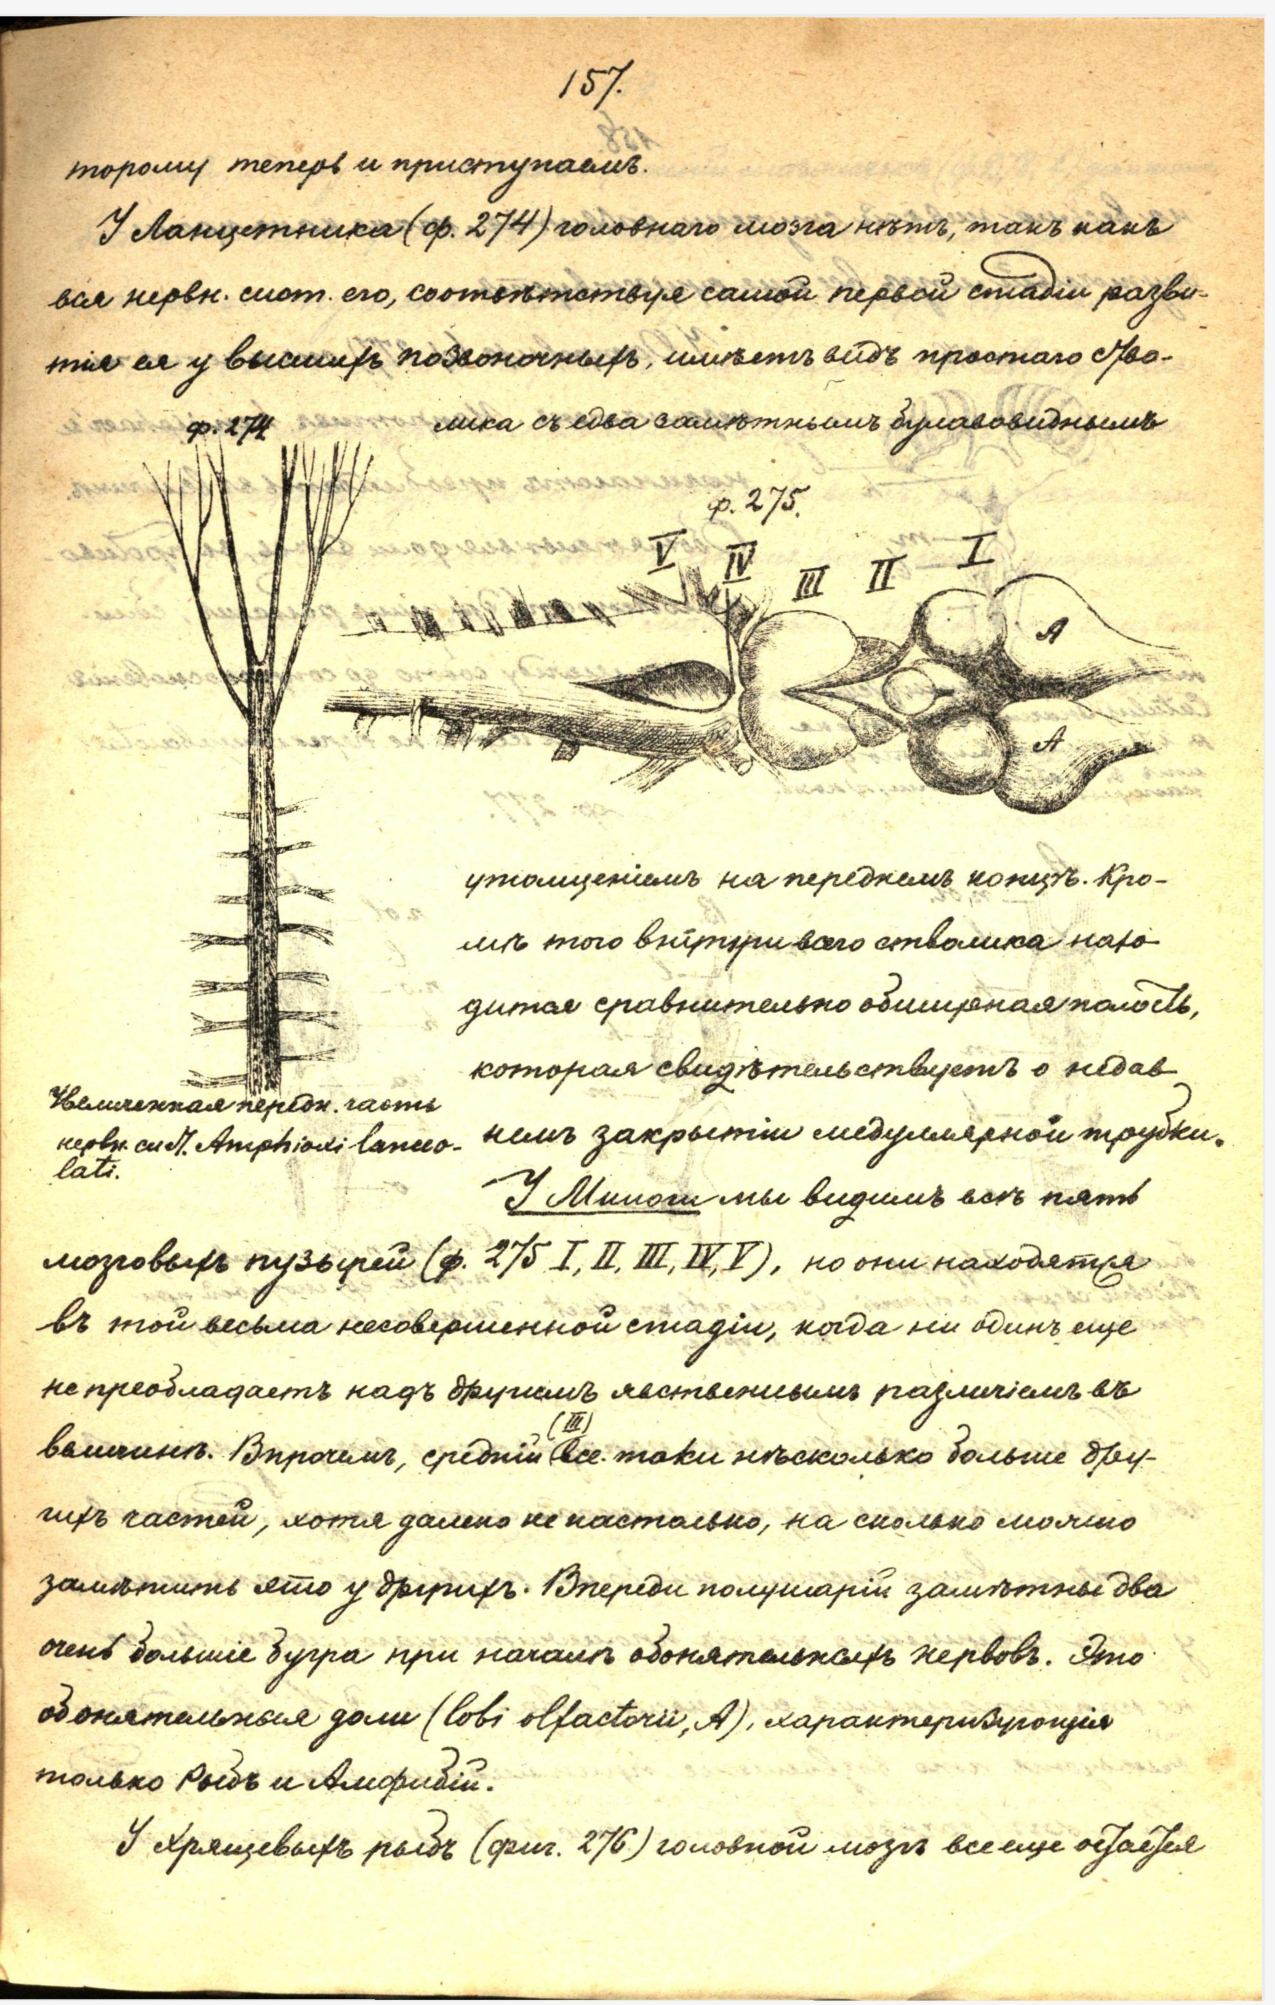 157.
торому теперь и приступаемъ.
У Ланцетника (ф. 274) головнаго мозга нѣтъ, такъ какъ
вся нервн. сист. его, соотвѣтствуя самой первой стадіи разви-
тія ея у высшихъ позвоночныхъ, имѣетъ видъ простаго ство-
лика съ едва замѣтнымъ булавовиднымъ
ф. 274
ф. 275.
V IV III II I
A
A
утолщеніемъ на переднемъ концѣ. Кро-
мѣ того внутри всего стволика нахо-
дится сравнительно обширная полость,
которая свидѣтельствуетъ о недав-
немъ закрытіи медуллярной трубки.
Увеличенная передн. часть
нервн. сист. Amphioxi lanceo-
lati.
У Миноги мы видимъ всѣ пять
мозговыхъ пузырей (ф. 275 I, II, III, IV, V), но они находятся
въ той весьма несовершенной стадіи, когда ни одинъ еще
не преобладаетъ надъ другимъ явственнымъ различіемъ въ
величинѣ. Впрочемъ, средній (III) все-таки нѣсколько больше дру-
гихъ частей, хотя далеко не настолько, на сколько можно
замѣтить это у другихъ. Впереди полушарій замѣтны два
очень большіе бугра при началѣ обонятельныхъ нервовъ. Это
обонятельныя доли (lobi olfactorii, A), характеризующія
только Рыбъ и Амфибій.
У Хрящевыхъ рыбъ (фиг. 276) головной мозгъ все еще остается